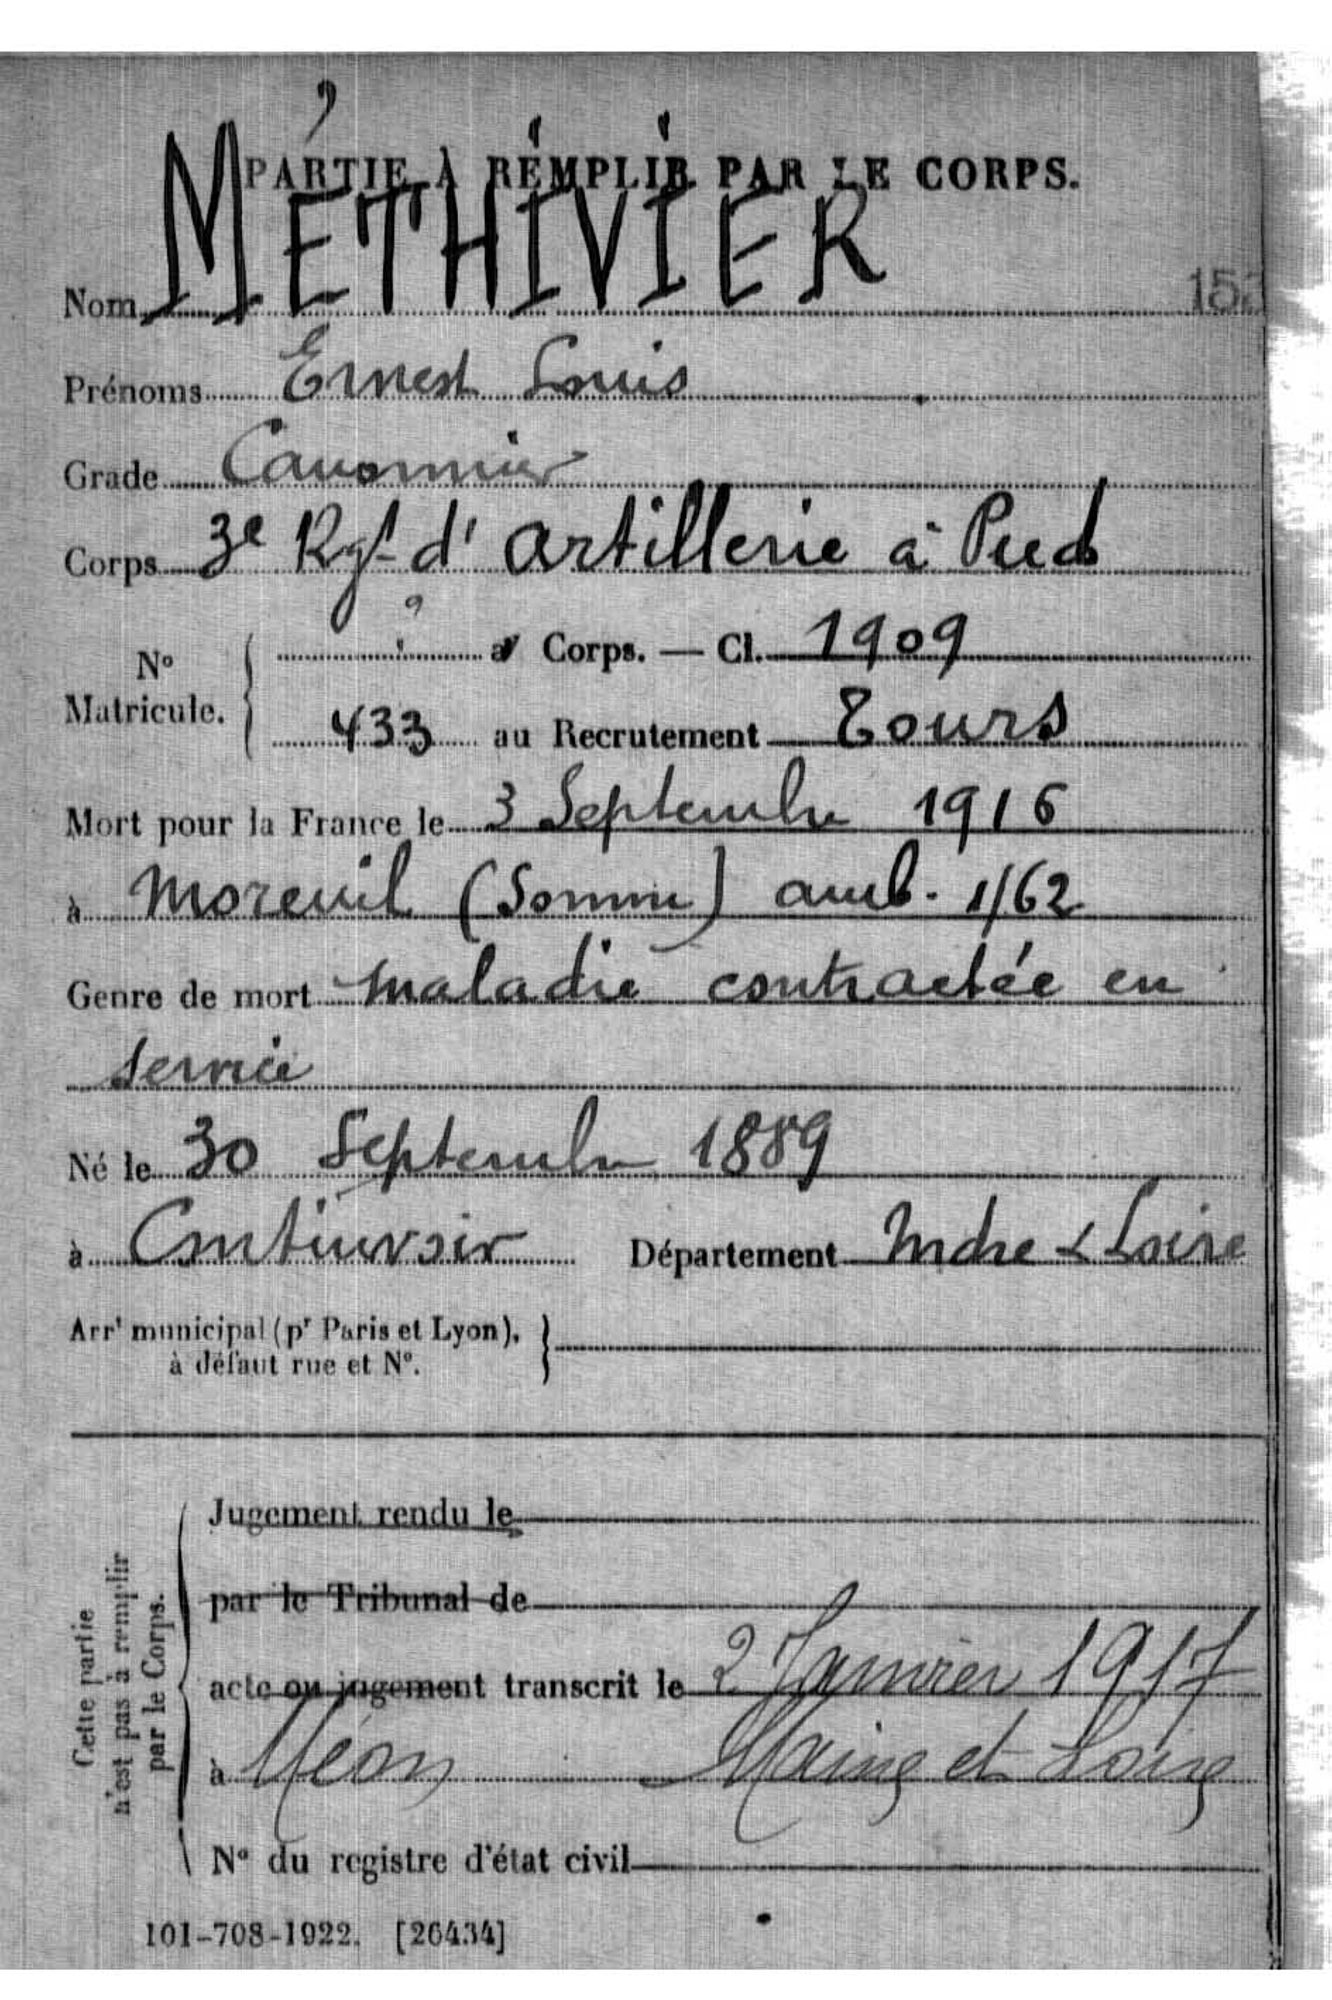 PARTIE À REMPLIR PAR LE CORPS.
Nom MÉTHIVIER
Prénoms Ernest Louis
Grade Canonnier
Corps 3e Rgt d'artillerie à Pied
N° Matricule. { ? au Corps. — Cl. 1909
433 au Recrutement Tours
Mort pour la France le 3 Septembre 1916
à Moreuil (Somme) amb. 1/62
Genre de mort maladie contractée en
service
Né le 30 Septembre 1889
à Continvoir Département Indre & Loire
Arrt municipal (pr Paris et Lyon), }
à défaut rue et N°.
Cette partie
n'est pas à remplir
par le Corps.
Jugement rendu le
par le Tribunal de
acte ou jugement transcrit le 2 Janvier 1917
à Méon Maine et Loire
N° du registre d'état civil
101-708-1922. [26434]